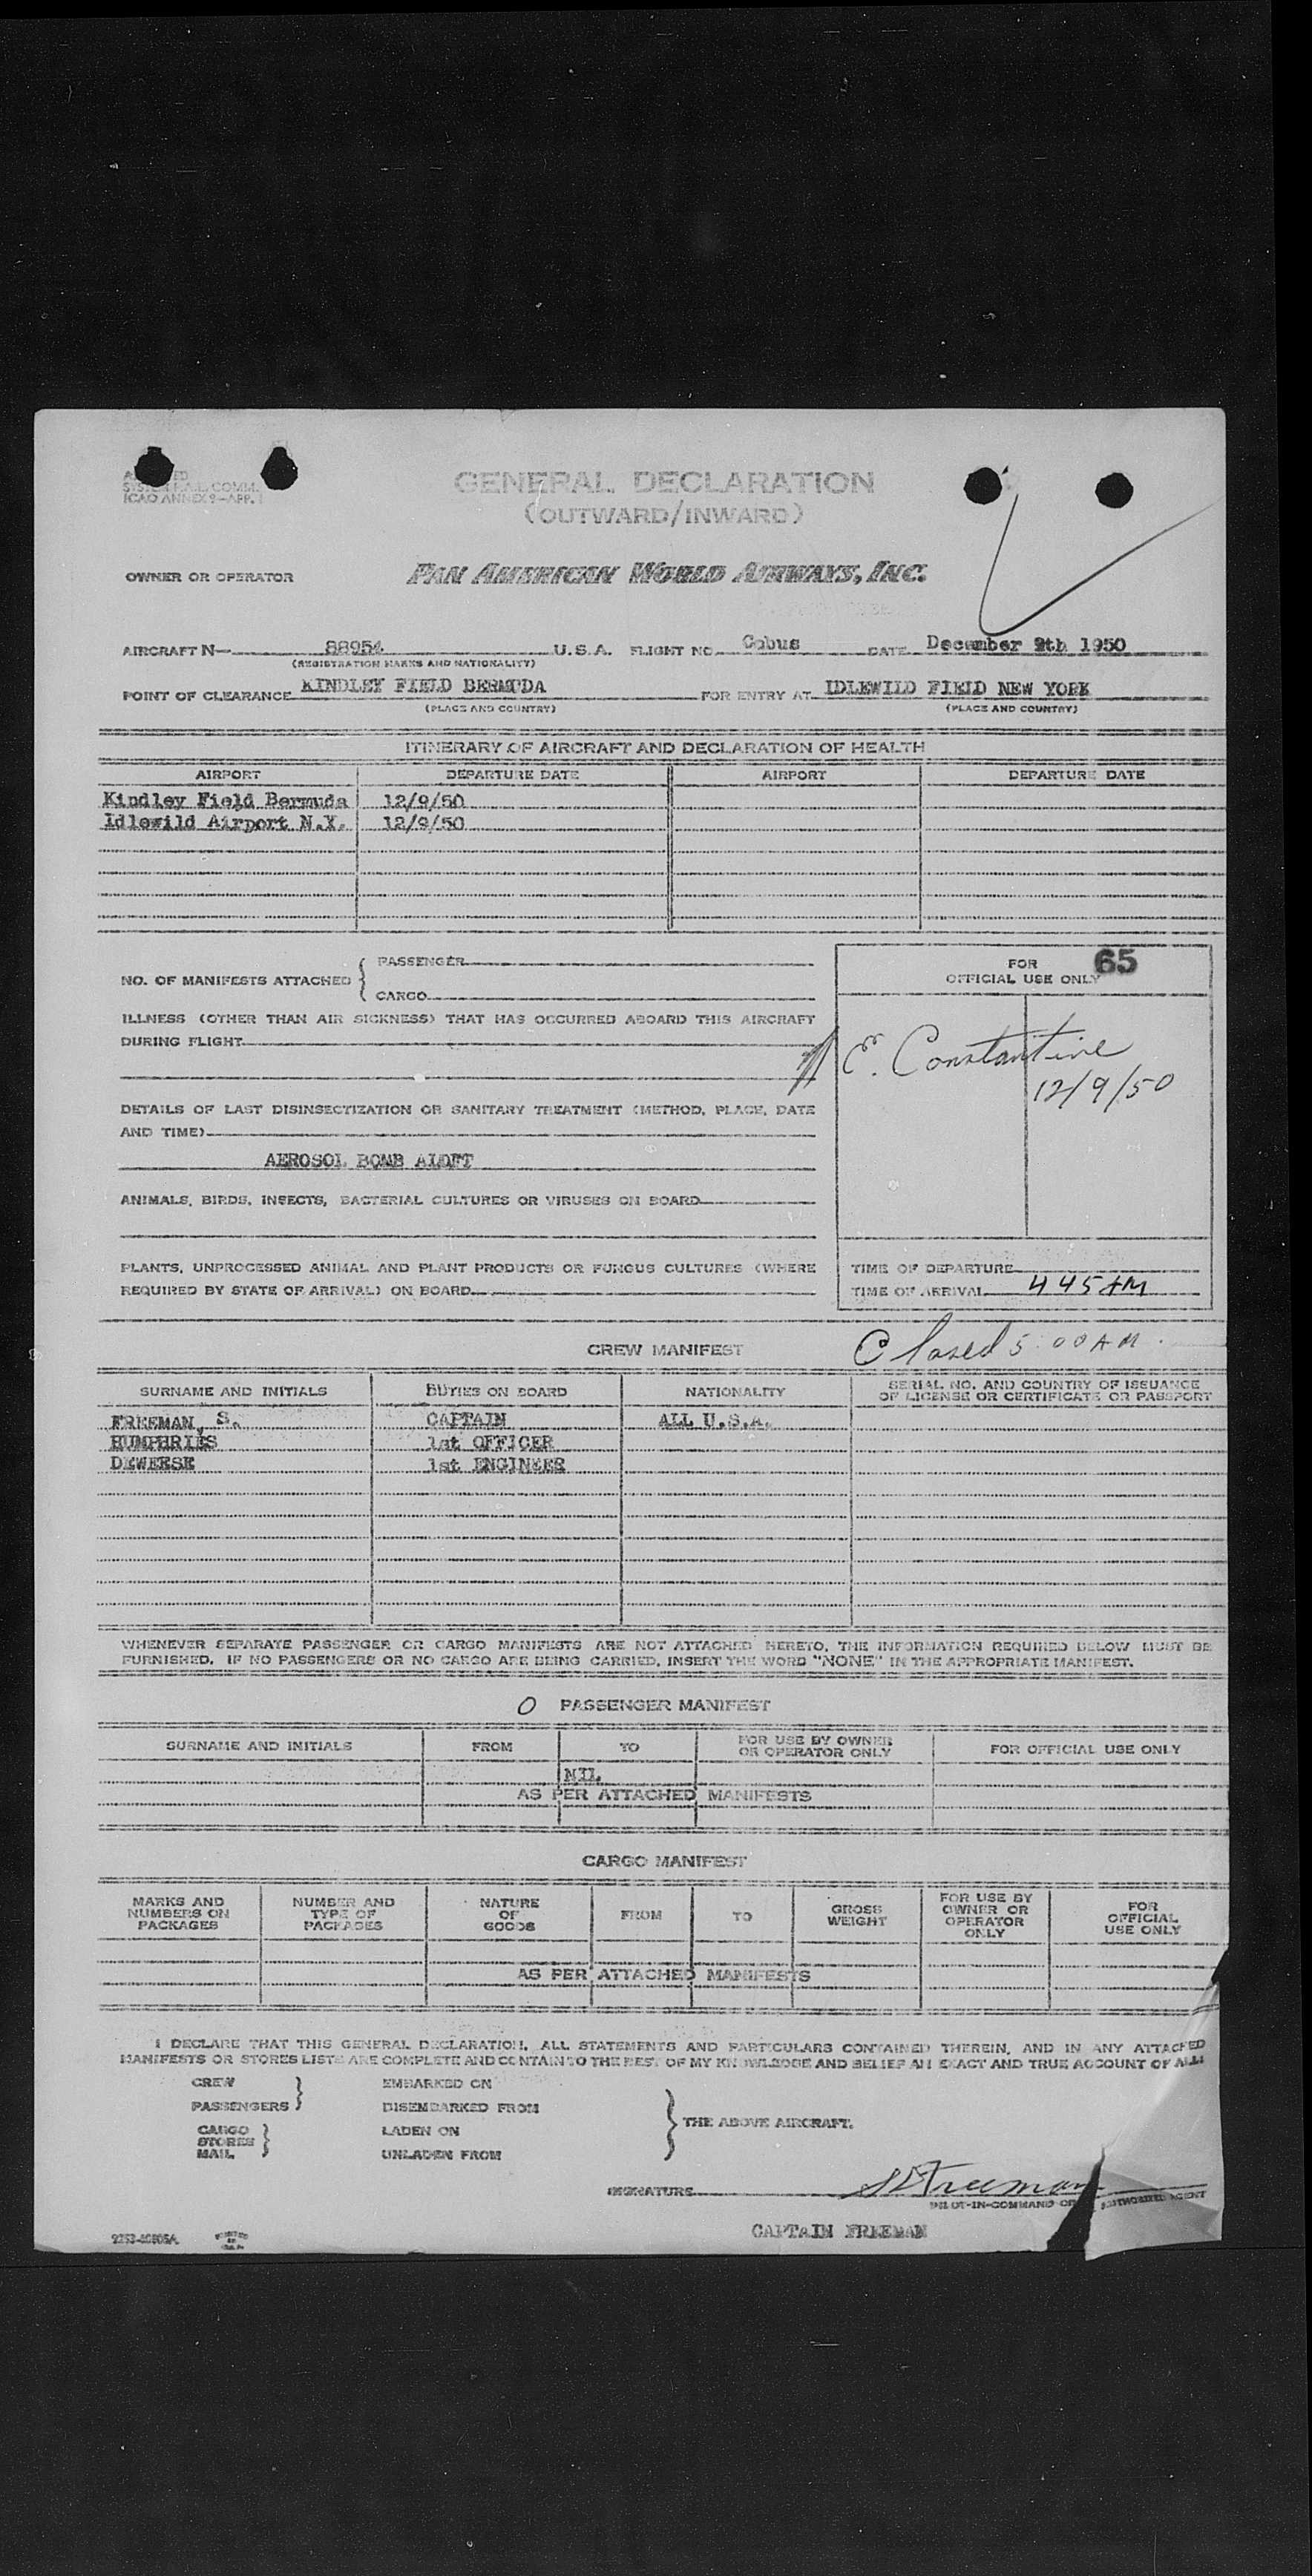 SYSTEM F.A.L. COMM.
ICAO ANNEX 9—APP. 1
GENERAL DECLARATION
(OUTWARD/INWARD)
OWNER OR OPERATOR PAN AMERICAN WORLD AIRWAYS, INC.
AIRCRAFT N— 88954 U.S.A. FLIGHT NO. Cobus DATE December 9th 1950
(REGISTRATION MARKS AND NATIONALITY)
POINT OF CLEARANCE KINDLEY FIELD BERMUDA FOR ENTRY AT IDLEWILD FIELD NEW YORK
(PLACE AND COUNTRY) (PLACE AND COUNTRY)
ITINERARY OF AIRCRAFT AND DECLARATION OF HEALTH
AIRPORT DEPARTURE DATE AIRPORT DEPARTURE DATE
Kindley Field Bermuda 12/9/50
Idlewild Airport N.Y. 12/9/50
NO. OF MANIFESTS ATTACHED { PASSENGER
CARGO
FOR 65
OFFICIAL USE ONLY
ILLNESS (OTHER THAN AIR SICKNESS) THAT HAS OCCURRED ABOARD THIS AIRCRAFT
DURING FLIGHT
E. Constantine
12/9/50
DETAILS OF LAST DISINSECTIZATION OR SANITARY TREATMENT (METHOD, PLACE, DATE
AND TIME)
AEROSOL BOMB ALOFT
ANIMALS, BIRDS, INSECTS, BACTERIAL CULTURES OR VIRUSES ON BOARD
PLANTS, UNPROCESSED ANIMAL AND PLANT PRODUCTS OR FUNGUS CULTURES (WHERE
REQUIRED BY STATE OF ARRIVAL) ON BOARD
TIME OF DEPARTURE
TIME OF ARRIVAL 4 45 AM
Closed 5:00 AM.
CREW MANIFEST
SURNAME AND INITIALS DUTIES ON BOARD NATIONALITY SERIAL NO. AND COUNTRY OF ISSUANCE
OF LICENSE OR CERTIFICATE OR PASSPORT
FREEMAN, S. CAPTAIN ALL U.S.A.
HUMPHRIES 1st OFFICER
DEWEESE 1st ENGINEER
WHENEVER SEPARATE PASSENGER OR CARGO MANIFESTS ARE NOT ATTACHED HERETO, THE INFORMATION REQUIRED BELOW MUST BE
FURNISHED. IF NO PASSENGERS OR NO CARGO ARE BEING CARRIED, INSERT THE WORD "NONE" IN THE APPROPRIATE MANIFEST.
O PASSENGER MANIFEST
SURNAME AND INITIALS FROM TO FOR USE BY OWNER
OR OPERATOR ONLY FOR OFFICIAL USE ONLY
NIL
AS PER ATTACHED MANIFESTS
CARGO MANIFEST
MARKS AND
NUMBERS ON
PACKAGES
NUMBER AND
TYPE OF
PACKAGES
NATURE
OF
GOODS
FROM
TO
GROSS
WEIGHT
FOR USE BY
OWNER OR
OPERATOR
ONLY
FOR
OFFICIAL
USE ONLY
AS PER ATTACHED MANIFESTS
I DECLARE THAT THIS GENERAL DECLARATION, ALL STATEMENTS AND PARTICULARS CONTAINED THEREIN, AND IN ANY ATTACHED
MANIFESTS OR STORES LISTS ARE COMPLETE AND CONTAIN TO THE BEST OF MY KNOWLEDGE AND BELIEF AN EXACT AND TRUE ACCOUNT OF ALL:
CREW
PASSENGERS }
CARGO
STORES }
MAIL
EMBARKED ON
DISEMBARKED FROM
LADEN ON
UNLADEN FROM
} THE ABOVE AIRCRAFT.
SIGNATURE S Freeman
PILOT-IN-COMMAND OR AUTHORIZED AGENT
CAPTAIN FREEMAN
PRINTED
IN
U.S.A.